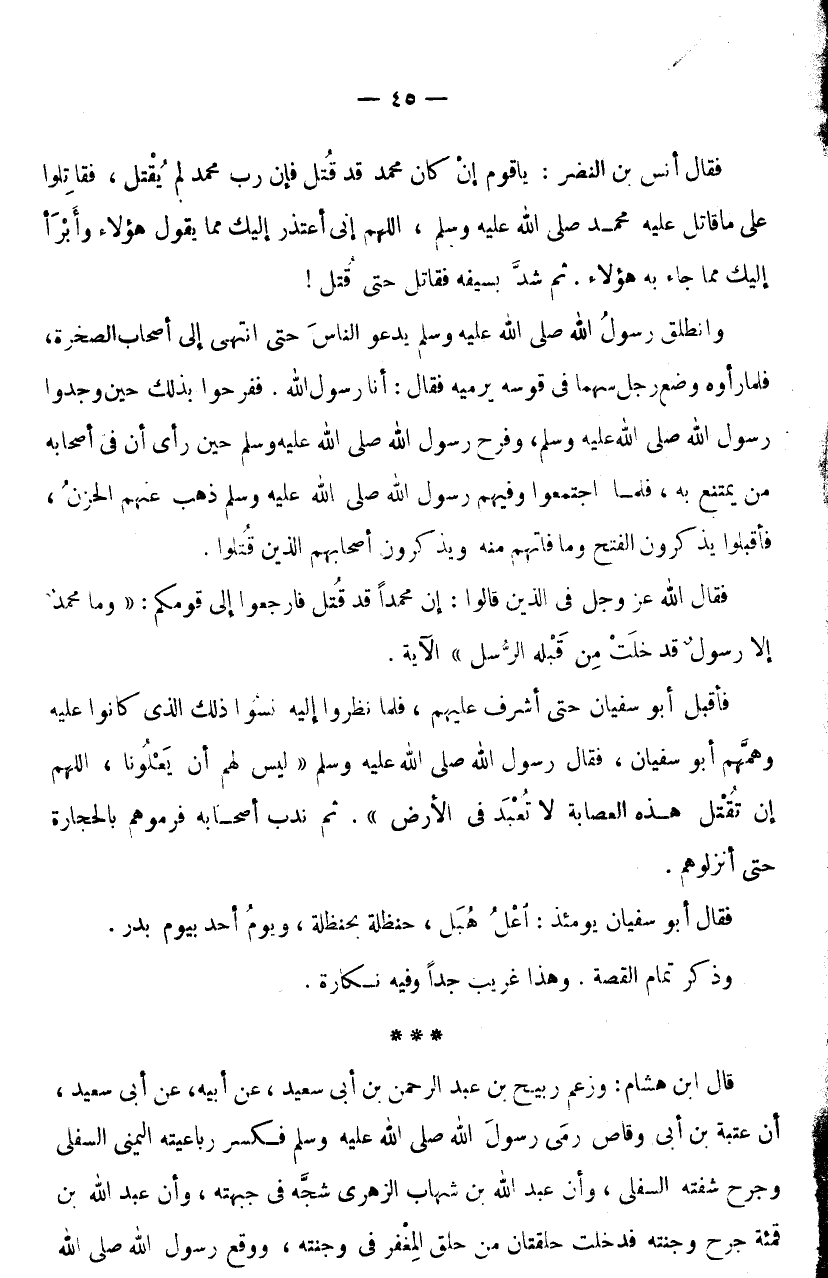 — ٤٥ —
فقال أنس بن النضر : ياقوم إنْ كان محمد قد قُتل فإن رب محمد لم يُقْتل ، فقاتِلوا
على ماقاتل عليه محمـد صلى الله عليه وسلم ، اللهم إنى أعتذر إليك مما يقول هؤلاء وأَبْرَأ
إليك مما جاء به هؤلاء . ثم شدَّ بسيفه فقاتل حتى قُتل !
وانطلق رسولُ الله صلى الله عليه وسلم يدعو الناسَ حتى انتهى إلى أصحاب الصخرة،
فلما رأوه وضع رجل سهما فى قوسه يرميه فقال : أنا رسول الله . ففرحوا بذلك حين وجدوا
رسول الله صلى الله عليه وسلم، وفرح رسول الله صلى الله عليه وسلم حين رأى أن فى أصحابه
من يمتنع به ، فلمـا اجتمعوا وفيهم رسول الله صلى الله عليه وسلم ذهب عنهم الحزنُ ،
فأقبلوا يذكرون الفتح وما فاتهم منه ويذكرون أصحابهم الذين قُتلوا .
فقال الله عز وجل فى الذين قالوا : إن محمداً قد قُتل فارجعوا إلى قومكم : « وما محمدٌ
إلا رسولٌ قد خلَتْ مِن قَبْله الرُّسل » الآية .
فأقبل أبو سفيان حتى أشرف عليهم ، فلما نظروا إليه نسُوا ذلك الذى كانوا عليه
وهمَّهم أبو سفيان ، فقال رسول الله صلى الله عليه وسلم « ليس لهم أن يَعْلُونا ، اللهم
إن تُقْتل هـذه العصابة لا تُعْبَد فى الأرض » . ثم ندب أصحـابه فرموهم بالحجارة
حتى أنزلوهم .
فقال أبو سفيان يومئذ : اَعْلُ هُبَل ، حنظلة بحنظلة ، ويومُ أحد بيوم بدر .
وذكر تمام القصة . وهذا غريب جداً وفيه نـكارة .
* * *
قال ابن هشام : وزعم ربيـح بن عبد الرحمن بن أبى سعيد ، عن أبيه، عن أبى سعيد ،
أن عتبة بن أبى وقاص رمَى رسولَ الله صلى الله عليه وسلم فـكسر رباعيته اليمنى السفلى
وجرح شفته السفلى ، وأن عبد الله بن شهاب الزهرى شجَّه فى جبهته ، وأن عبد الله بن
قمئة جرح وجنته فدخلت حلقتان من حلق المِغْفر فى وجنته ، ووقع رسول الله صلى الله